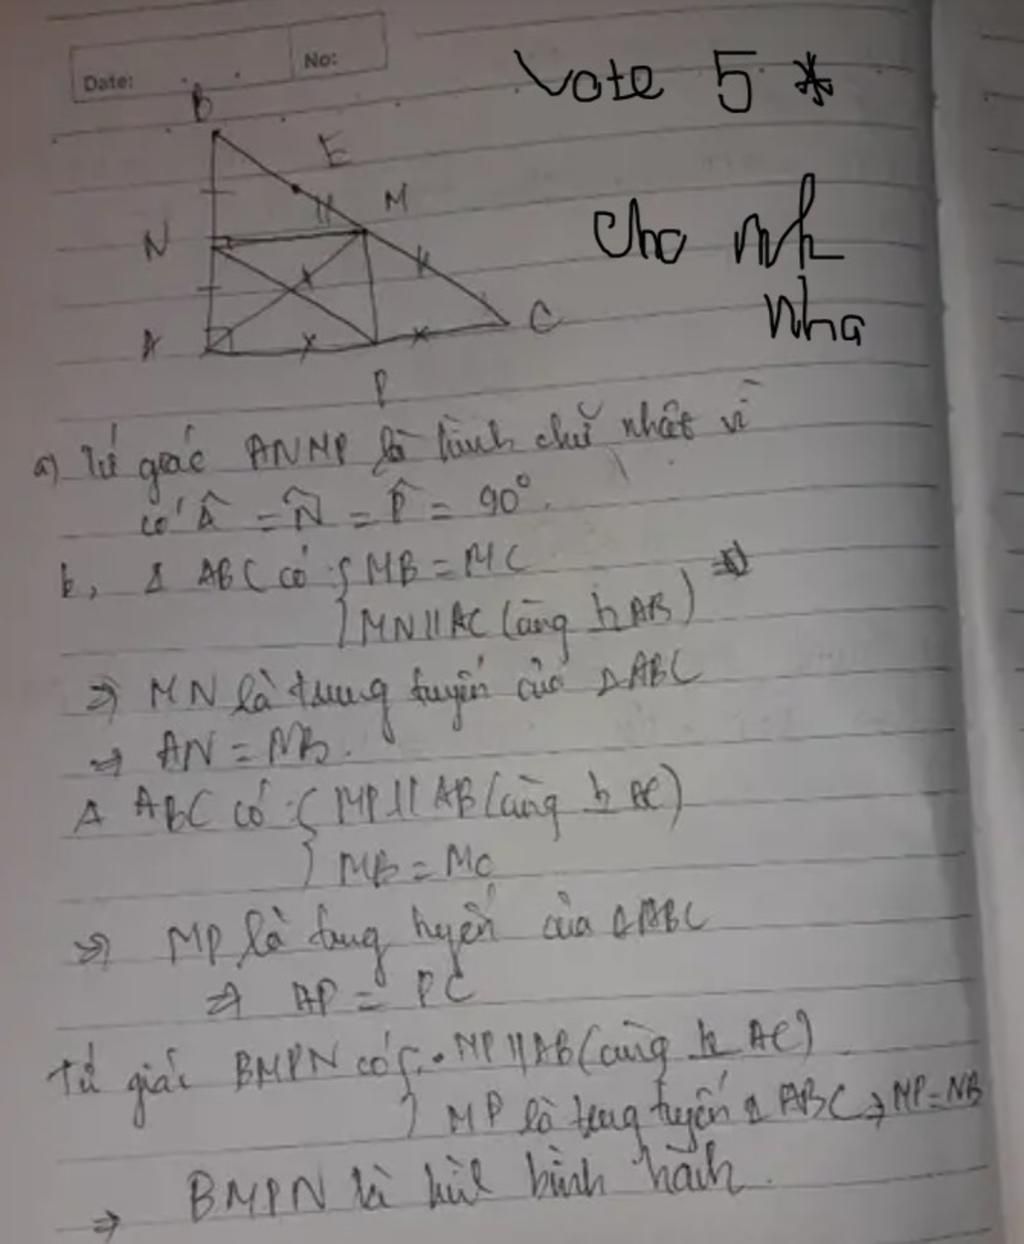 Date:
No:
Vote 5 *
Cho mk
nha
B
E
M
N
A
P
C
a) Tứ giác ANMP là hình chữ nhật vì
có Â = N̂ = P̂ = 90°.
b, Δ ABC có { MB = MC
MN // AC (cùng ⊥ AB) ⇒
⇒ MN là trung tuyến của Δ ABC
⇒ AN = NB.
Δ ABC có { MP // AB (cùng ⊥ AC)
MB = MC
⇒ MP là trung tuyến của Δ ABC
⇒ AP = PC
Tứ giác BMPN có { MP // AB (cùng ⊥ AC)
MP là trung tuyến Δ ABC ⇒ MP = NB
⇒ BMPN là hình bình hành.